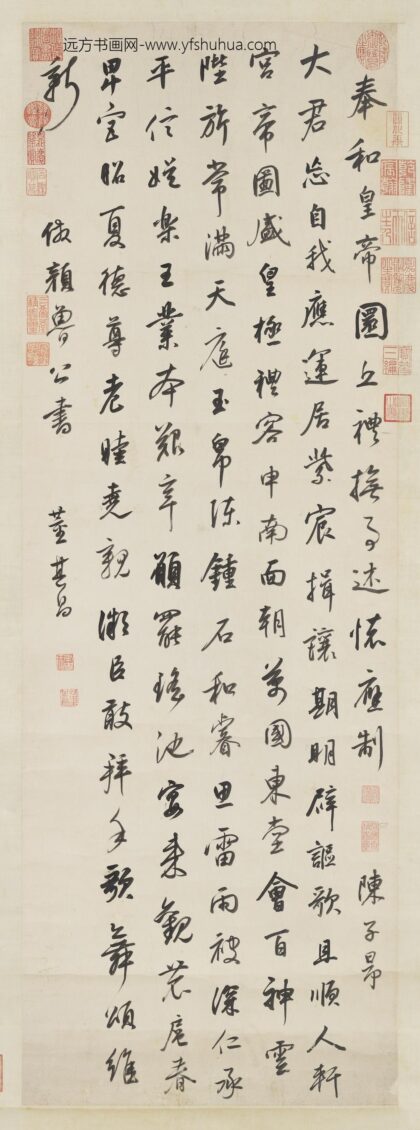 远方书画网-www.yfshuhua.com
奉和皇帝圜丘禮撫事述懷應制 陳子昂
大君忘自我應運居紫宸揖讓期明辟謳歌且順人軒
宮帝圖盛皇極禮容申南面朝萬國東堂會百神雲
陛旂常滿天庭玉帛陳鍾石和睿思雷雨被深仁承
平信娛樂王業本艱辛願罷瑤池宴來觀農扈春
卑宮昭夏德尊老睦堯親微臣敢拜手歌舞頌維
新
倣顏魯公書 董其昌